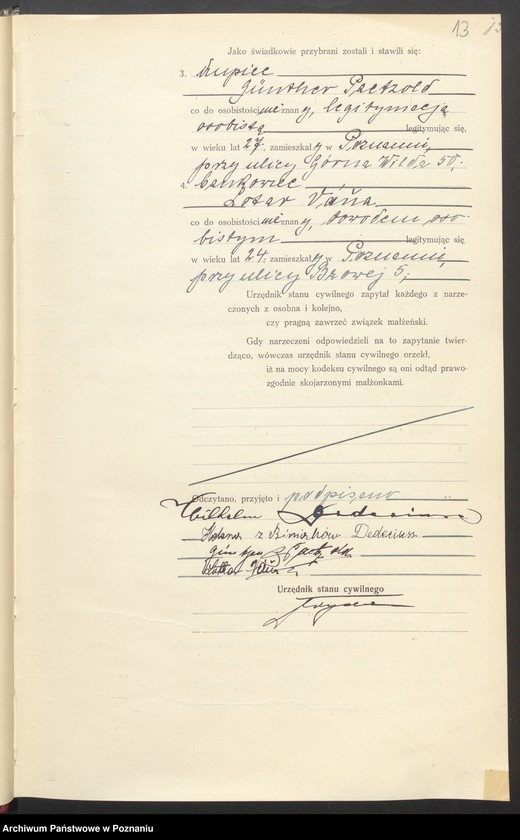 13
Jako świadkowie przybrani zostali i stawili się:
3. kupiec
Günther Paetzold
co do osobistości nie znany, legitymacją
osobistą legitymując się,
w wieku lat 27, zamieszkały w Poznaniu,
przy ulicy Górna Wilda 50;
4. bankowiec
Lotar Váňa
co do osobistości nie znany, dowodem oso-
bistym legitymując się
w wieku lat 24, zamieszkały w Poznaniu,
przy ulicy 5,
Urzędnik stanu cywilnego zapytał każdego z narze-
czonych z osobna i kolejno,
czy pragną zawrzeć związek małżeński.
Gdy narzeczeni odpowiedzieli na to zapytanie twier-
dząco, wówczas urzędnik stanu cywilnego orzekł,
iż na mocy kodeksu cywilnego są oni odtąd prawo-
zgodnie skojarzonymi małżonkami.
Odczytano, przyjęto i podpisano
Wilhelm Dedecius
z Dedecius
Urzędnik stanu cywilnego
Archiwum Państwowe w Poznaniu